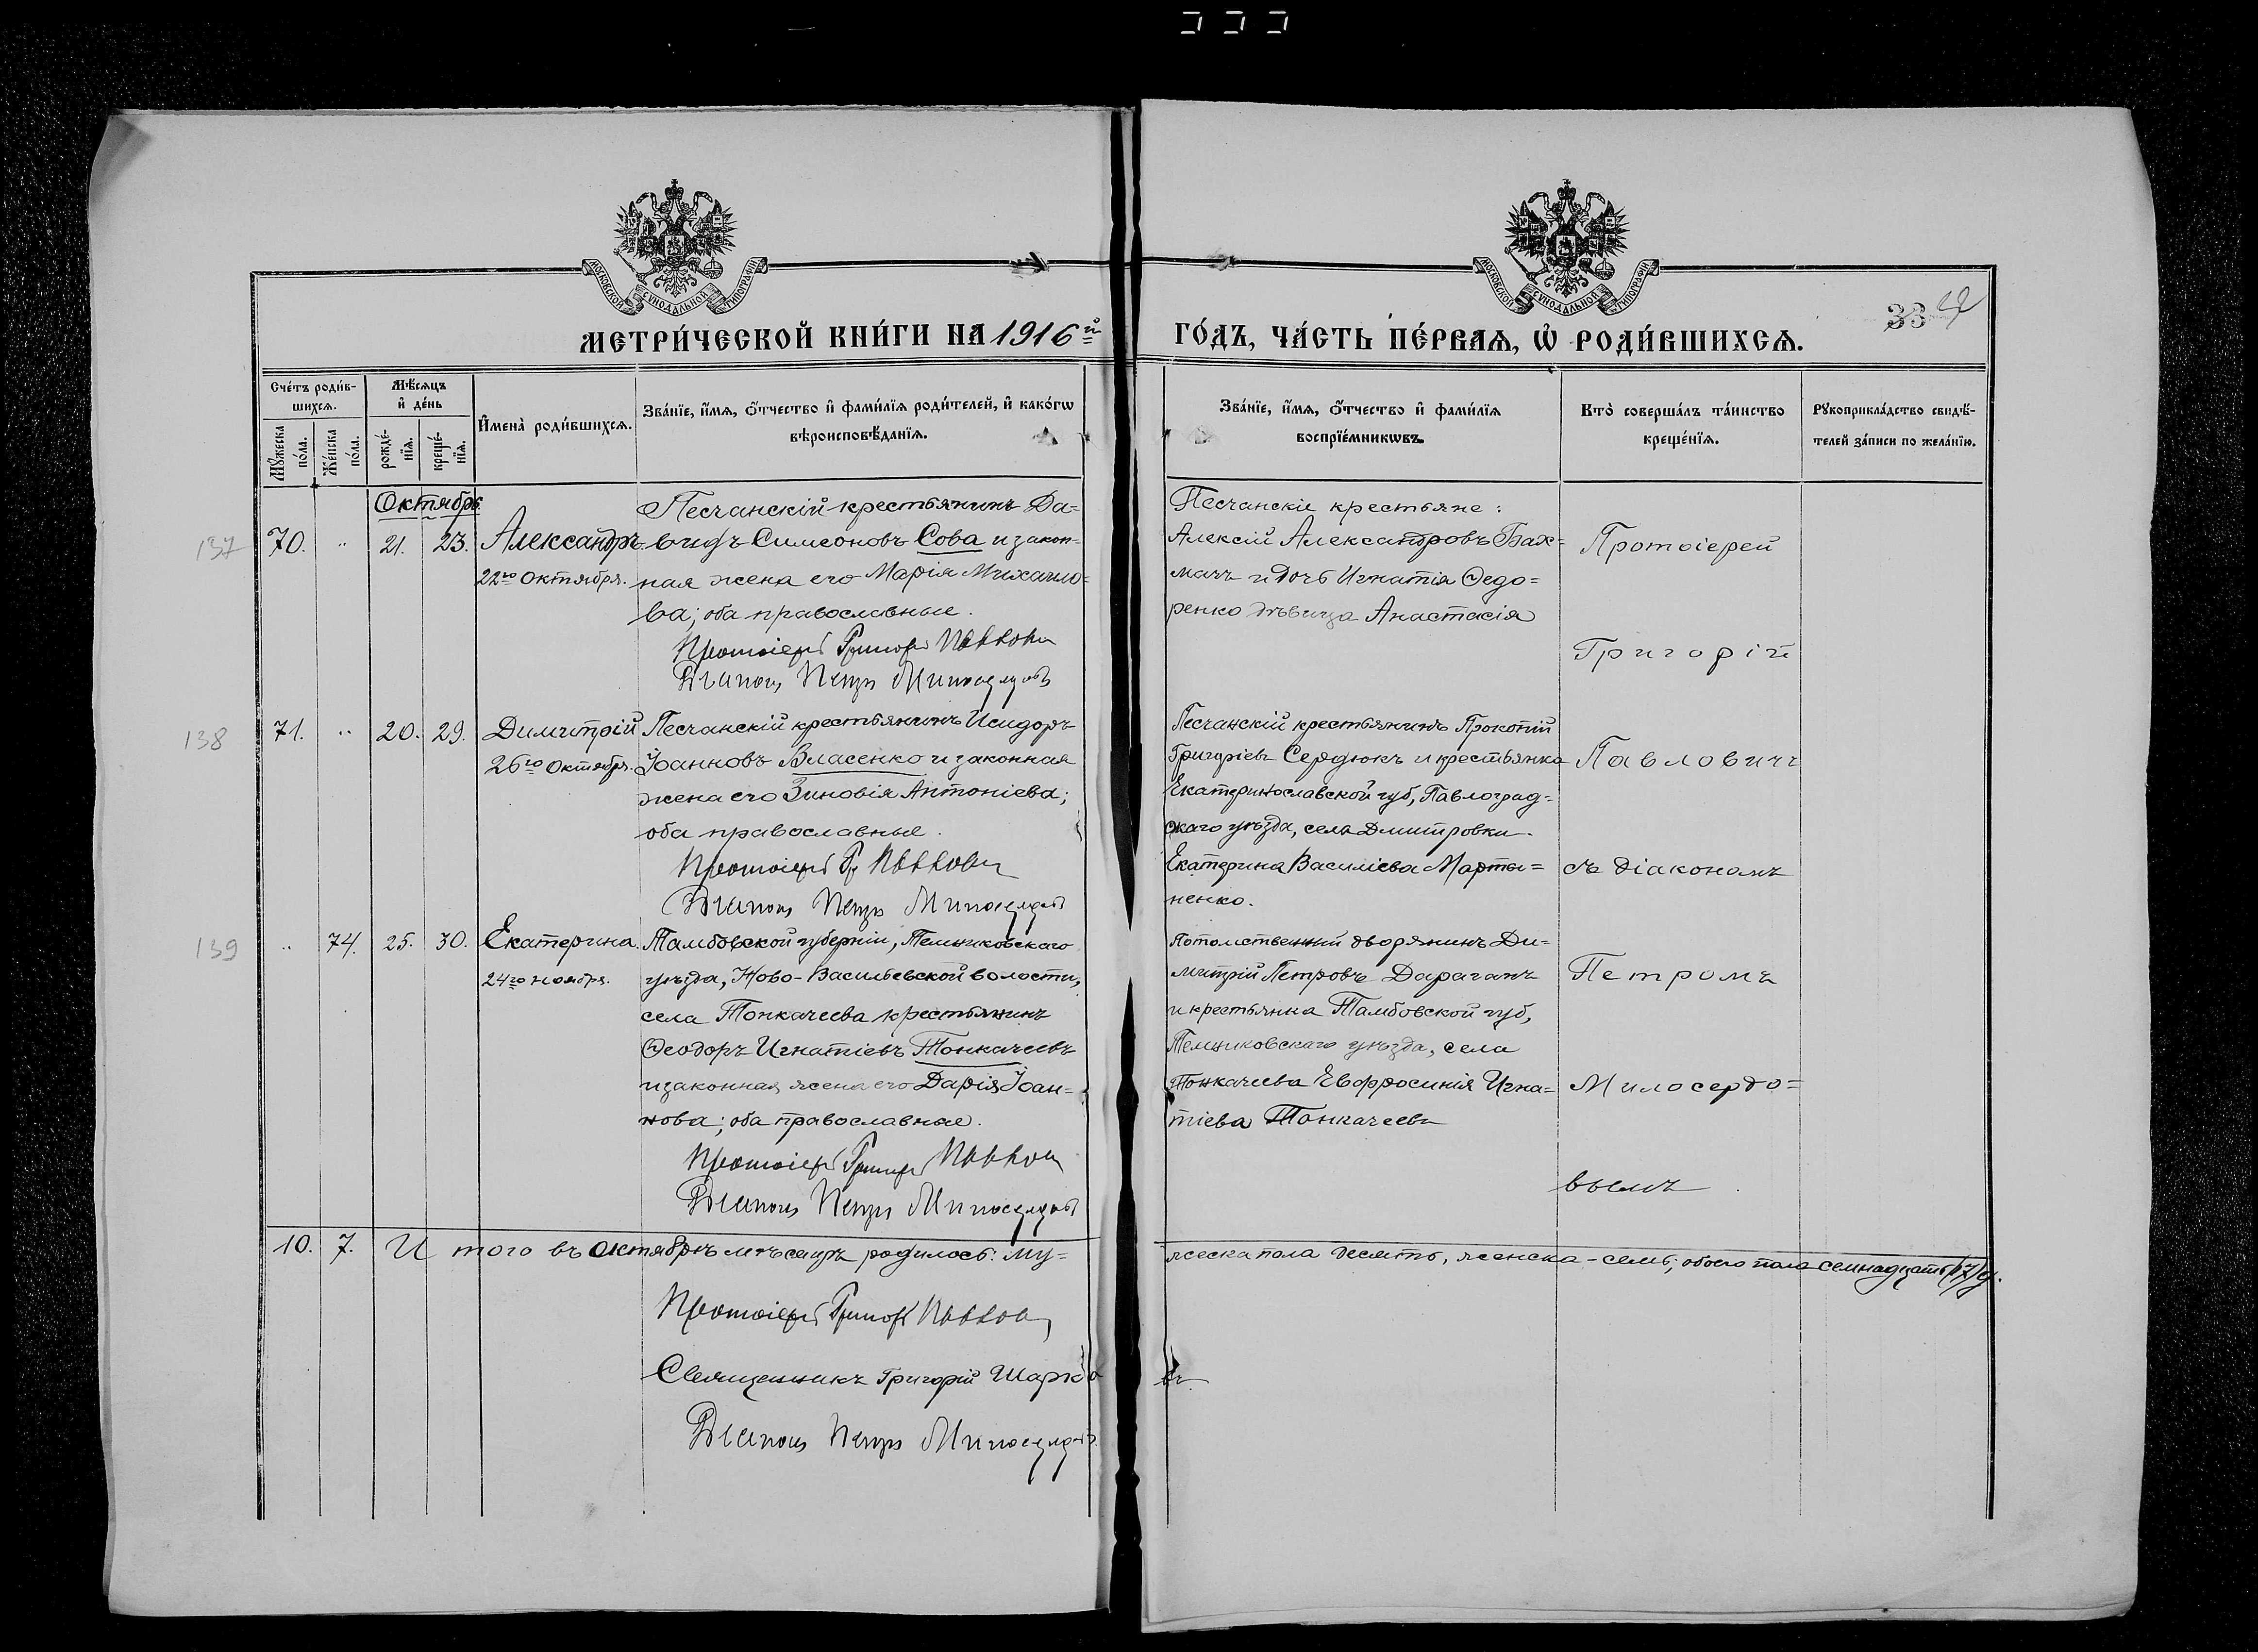 МОСКОВСКОЙ СѴНОДАЛЬНОЙ ТИПОГРАФІИ
МОСКОВСКОЙ СѴНОДАЛЬНОЙ ТИПОГРАФІИ
33
МЕТРИ́ЧЕСКОЙ КНИ́ГИ НА 1916й
ГО́ДЪ, ЧА́СТЬ ПЕ́РВАѦ, Ѽ РОДИ́ВШИХСѦ.
Сче́тъ роди́в-
шихсѧ.
Мꙋ́жеска по́ла.
Же́нска по́ла.
Мѣ́сѧцъ
и҆ де́нь
рожде́-
нїѧ.
креще́-
нїѧ.
И҆мена̀ роди́вшихсѧ.
Зва́нїе, и҆́мѧ, ѻ҆́тчество и҆ фами́лїѧ роди́телей, и҆ како́гѡ
вѣроисповѣ́данїѧ.
Зва́нїе, и҆́мѧ, ѻ҆́тчество и҆ фами́лїѧ
воспрїе́мникѡвъ.
Кто̀ соверша́лъ та́инство
креще́нїѧ.
Рꙋкоприкла́дство свидѣ́-
телей за́писи по жела́нїю.
Октябрь
137
70.
"
21.
23.
Александръ
22го Октября.
Песчанскій крестьянинъ Да-
видъ Симеоновъ Сова и закон-
ная жена его Марія Михаило-
ва; оба православные.
Протоіерей Григорій Павлович
Діаконъ Петръ Милосердовъ
Песчанскіе крестьяне:
Алексій Александровъ Бах-
мачъ и дочь Игнатія Ѳедо-
ренко дѣвица Анастасія
Протоіерей
Григорій
138
71.
"
20.
29.
Димитрій
26го Октября.
Песчанскій крестьянинъ Исидоръ
Іоанновъ Власенко и законная
жена его Зиновія Антоніева;
оба православные.
Протоіерей Гр Павлович
Діаконъ Петръ Милосердовъ
Песчанскій крестьянинъ Прокопій
Григоріевъ Сердюкъ и крестьянка
Екатеринославской губ, Павлоград-
скаго уѣзда, села Дмитровки
Екатерина Василіева Марты-
ненко.
Павловичъ
съ діакономъ
139
"
74.
25.
30.
Екатерина
24го ноября.
Тамбовской губерніи, Темниковскаго
уѣзда, Ново-Васильевской волости,
села Тонкачеева крестьянинъ
Ѳеодоръ Игнатіевъ Тонкачеевъ
и законная жена его Дарія Іоан-
нова; оба православные.
Протоіерей Григорій Павлович
Діаконъ Петръ Милосердовъ
Потомственный дворянинъ Ди-
митрій Петровъ Дараганъ
и крестьянка Тамбовской губ,
Темниковскаго уѣзда, села
Тонкачеева Евфросинія Игна-
тіева Тонкачеева
Петромъ
Милосердо-
вымъ
10.
7.
И того въ Октябрѣ мѣсяцѣ родилось: му-
жеска пола десять, женска-семь; обоего пола семнадцать (17) д.
Протоіерей Григорій Павлович
Священникъ Григорій Шарко
въ.
Діаконъ Петръ Милосердовъ